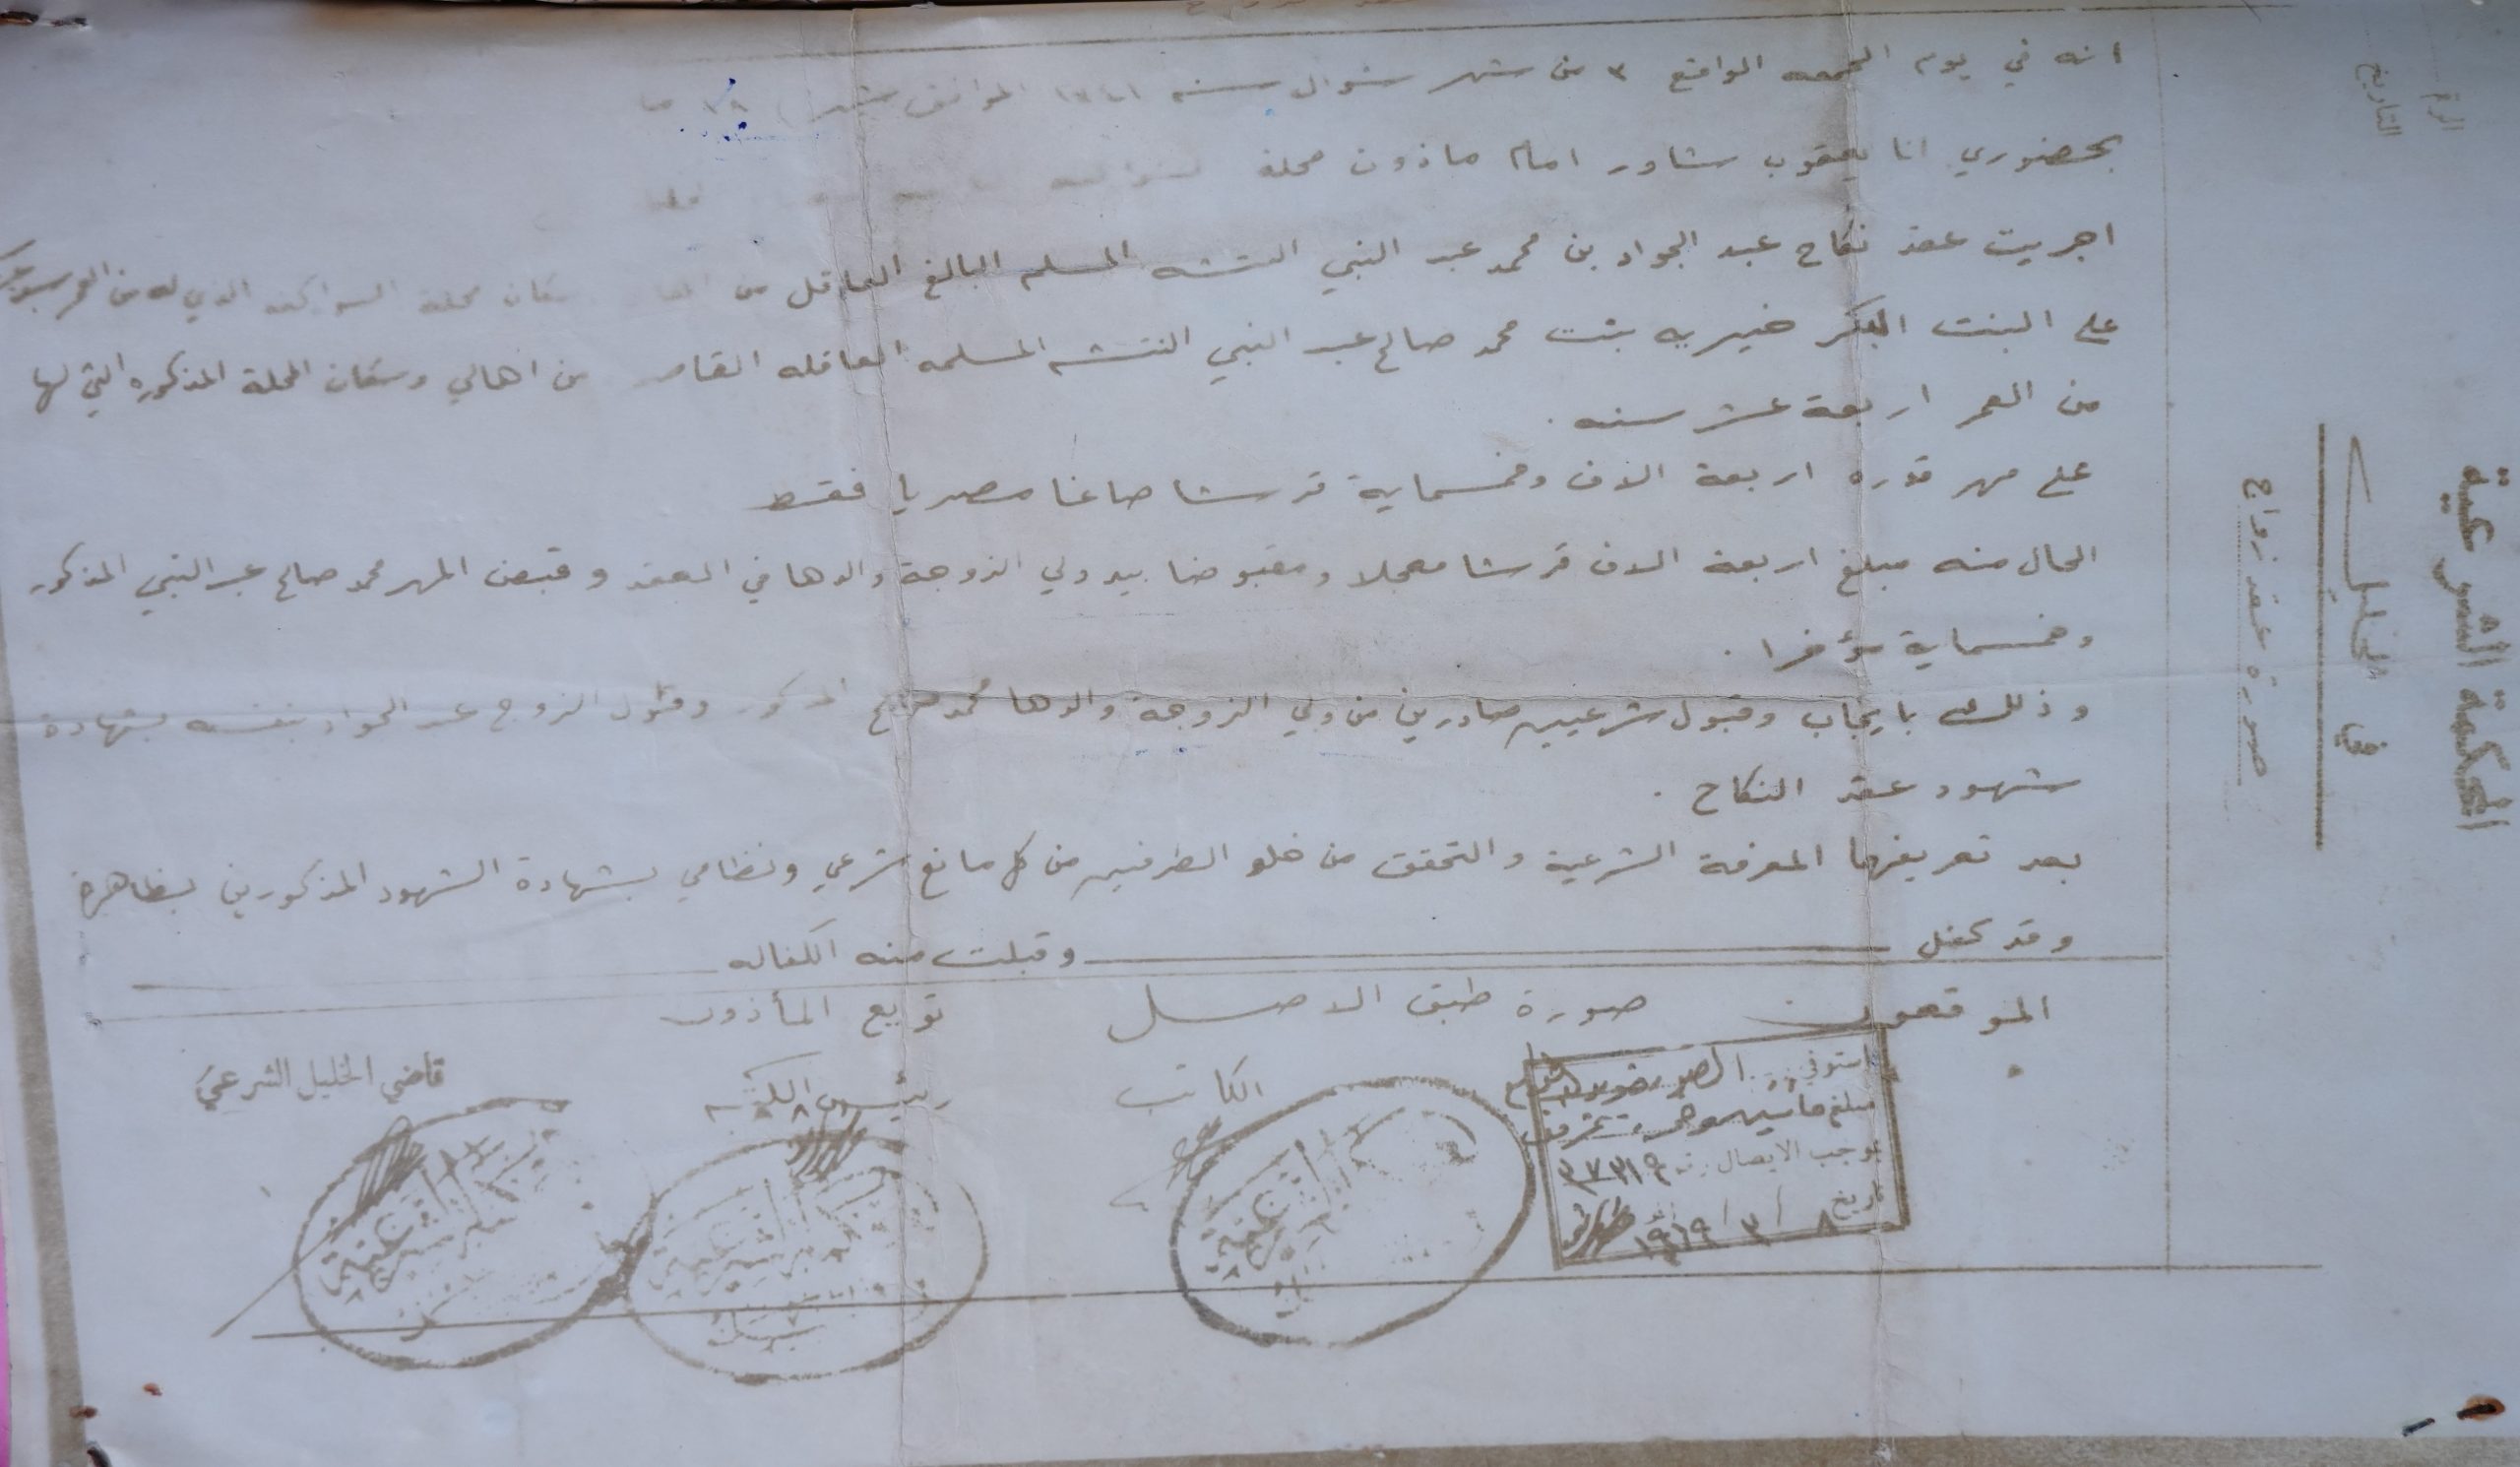 الرقم
التاريخ
المحكمة الشرعية
في الخليل
صورة عقد زواج
انه في يوم الجمعه الواقع ٣ من شهر شوال سنه الموافق
بحضوري انا يعقوب شاور امام ماذون محلة
اجريت عقد نكاح عبد الجواد بن محمد عبد النبي النتشه المسلم البالغ العاقل من سكان محلة السواكنه الذي له من العمر
على البنت البكر خيريه بنت محمد صالح عبد النبي النتشه المسلمه العاقله القاصر من اهالي وسكان المحلة المذكوره التي لها
من العمر اربعة عشر سنه .
على مهر قدره اربعة الاف وخمسماية قرشا صاغا مصريا فقط
الحال منه مبلغ اربعة الاف قرشا معجلا ومقبوضا بيد ولي الزوجة والدها في العقد وقبض المهر محمد صالح عبد النبي المذكور
وخمسماية مؤخرا .
وذلك بايجاب وقبول شرعيين صادرين من ولي الزوجة والدها محمد صالح المذكور وقبول الزوج عبد الجواد بنفسه بشهادة
شهود عقد النكاح .
بعد تعريفهما المعرفة الشرعية والتحقق من خلو الطرفين من كل مانع شرعي ونظامي بشهادة الشهود المذكورين بظاهره
وقد كفل وقبلت منه الكفاله
الموقعون صورة طبق الاصل توقيع المأذون
الكاتب رئيس الكتبه قاضي الخليل الشرعي
استوفي رسم
مبلغ
بموجب الايصال ٣٧٣١٩
تاريخ ٨ / ٣ / ١٩٦٩